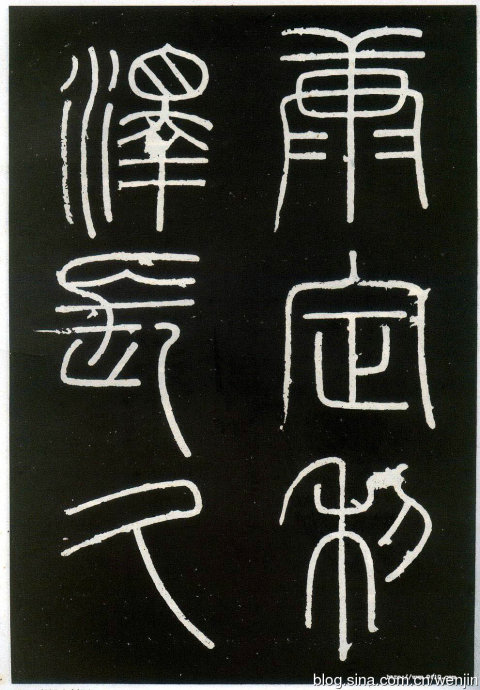 康定利
澤長久
blog.sina.com.cn/wenjin